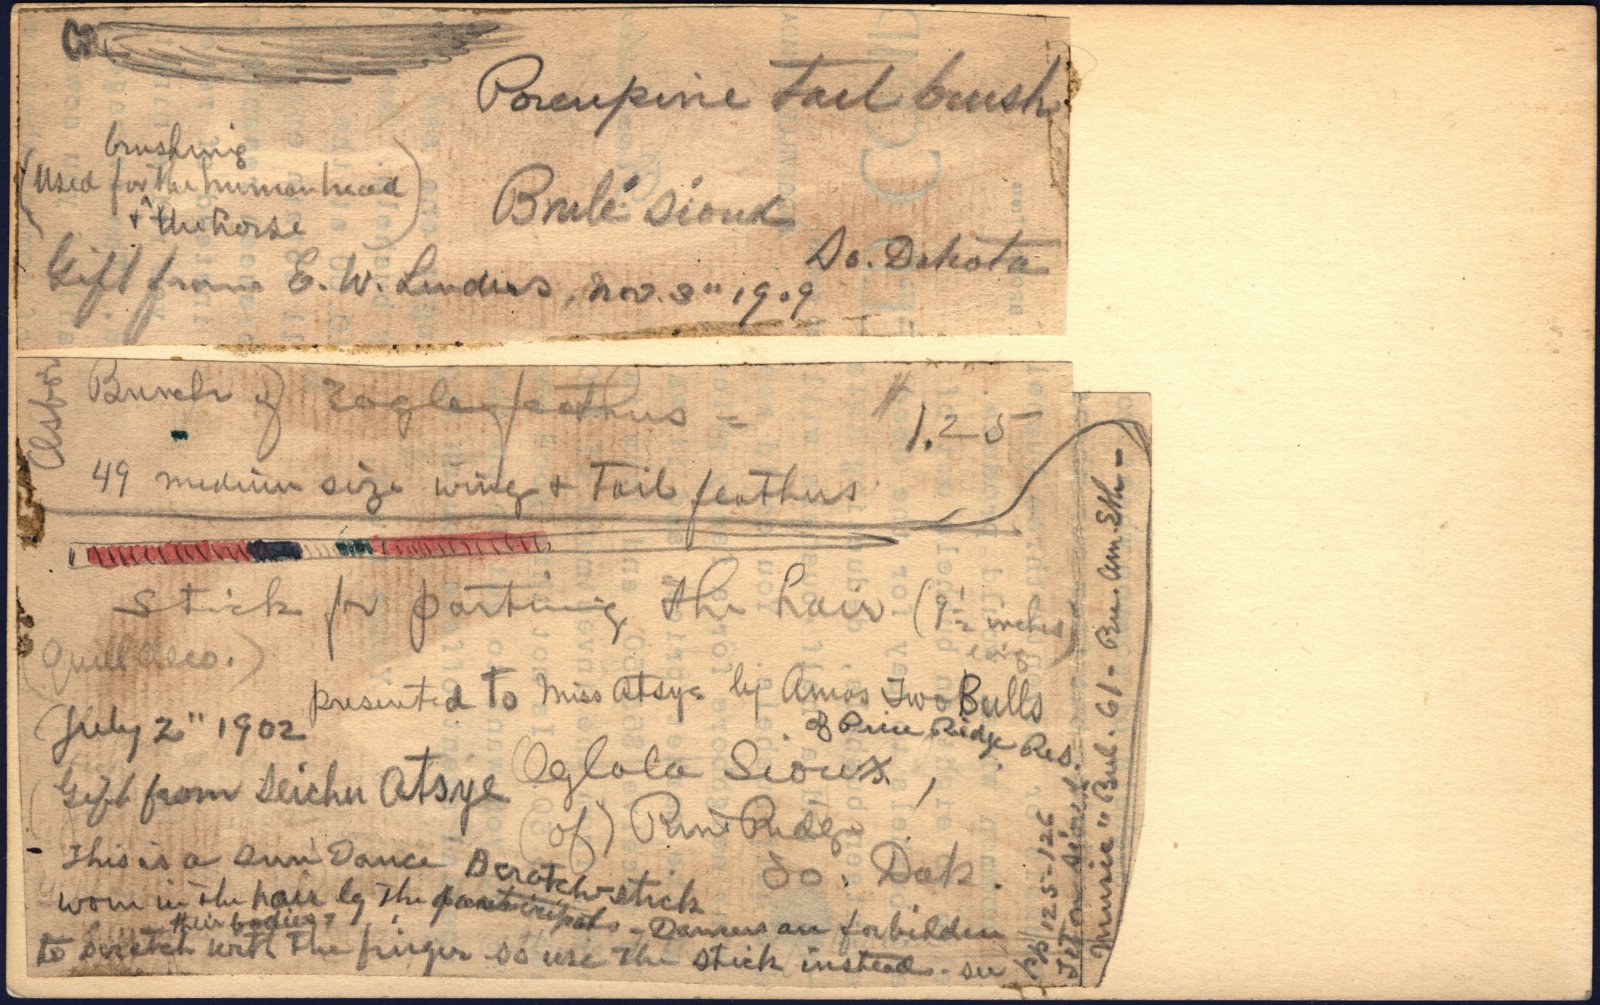 Porcupine tail brush
brushing
(Used for the human head
+ the horse)
Brulé Sioux
So. Dakota
Gift from E. W. Lenders, Nov. 3" 1909
Bunch of Eagle feathers - $1.25
49 medium size wing + tail feathers
Stick for parting the hair (9 1/2 inches
long)
(Quill deco.)
presented to Miss Atsye by Amos Two Bulls
of Pine Ridge Res.
July 2" 1902
Oglala Sioux,
Gift from Seichu Atsye
(of) Pine Ridge
So. Dak.
This is a Sun Dance Scratch-stick
worn in the hair by the participants - Dancers are forbidden
their bodies
to scratch with the finger so use the stick instead - see
pp 125-126
Teton Sioux
Music" Bul. 61 - Bu. Am. Eth -